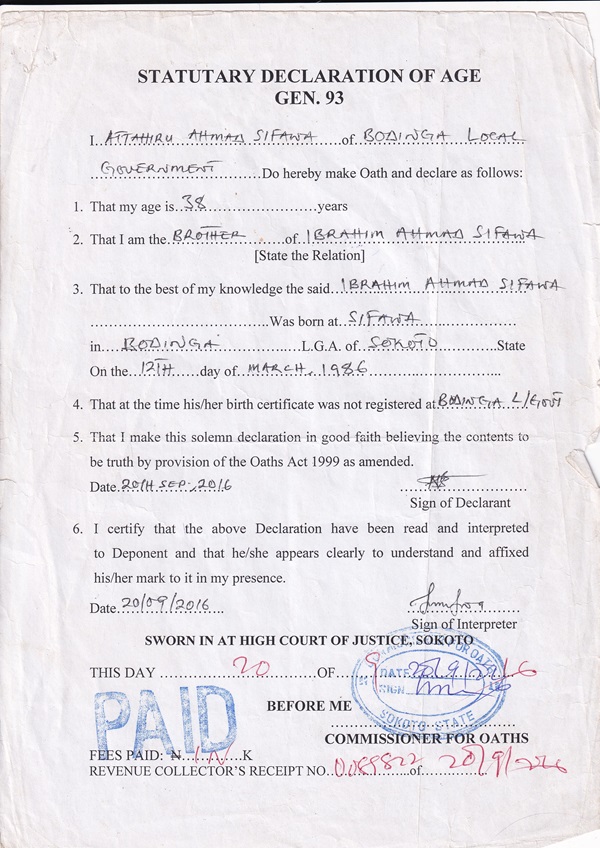 STATUTARY DECLARATION OF AGE
GEN. 93
I. ATTAHIRU AHMAD SIFAWA of BODINGA LOCAL
GOVERNMENT Do hereby make Oath and declare as follows:
1. That my age is 38 years
2. That I am the BROTHER of IBRAHIM AHMAD SIFAWA
[State the Relation]
3. That to the best of my knowledge the said IBRAHIM AHMAD SIFAWA
Was born at SIFAWA
in BODINGA L.G.A. of SOKOTO State
On the 12TH day of MARCH, 1986
4. That at the time his/her birth certificate was not registered at BODINGA L/GOVT
5. That I make this solemn declaration in good faith believing the contents to
be truth by provision of the Oaths Act 1999 as amended.
Date 20TH SEP., 2016
Sign of Declarant
6. I certify that the above Declaration have been read and interpreted
to Deponent and that he/she appears clearly to understand and affixed
his/her mark to it in my presence.
Date 20/09/2016
Sign of Interpreter
SWORN IN AT HIGH COURT OF JUSTICE, SOKOTO
THIS DAY 20 OF 9
FOR OATHS
DATE 20/9/2016
SIGN
SOKOTO STATE
PAID
BEFORE ME
COMMISSIONER FOR OATHS
FEES PAID: N K
REVENUE COLLECTOR'S RECEIPT NO. 0089822 of 20/9/2016